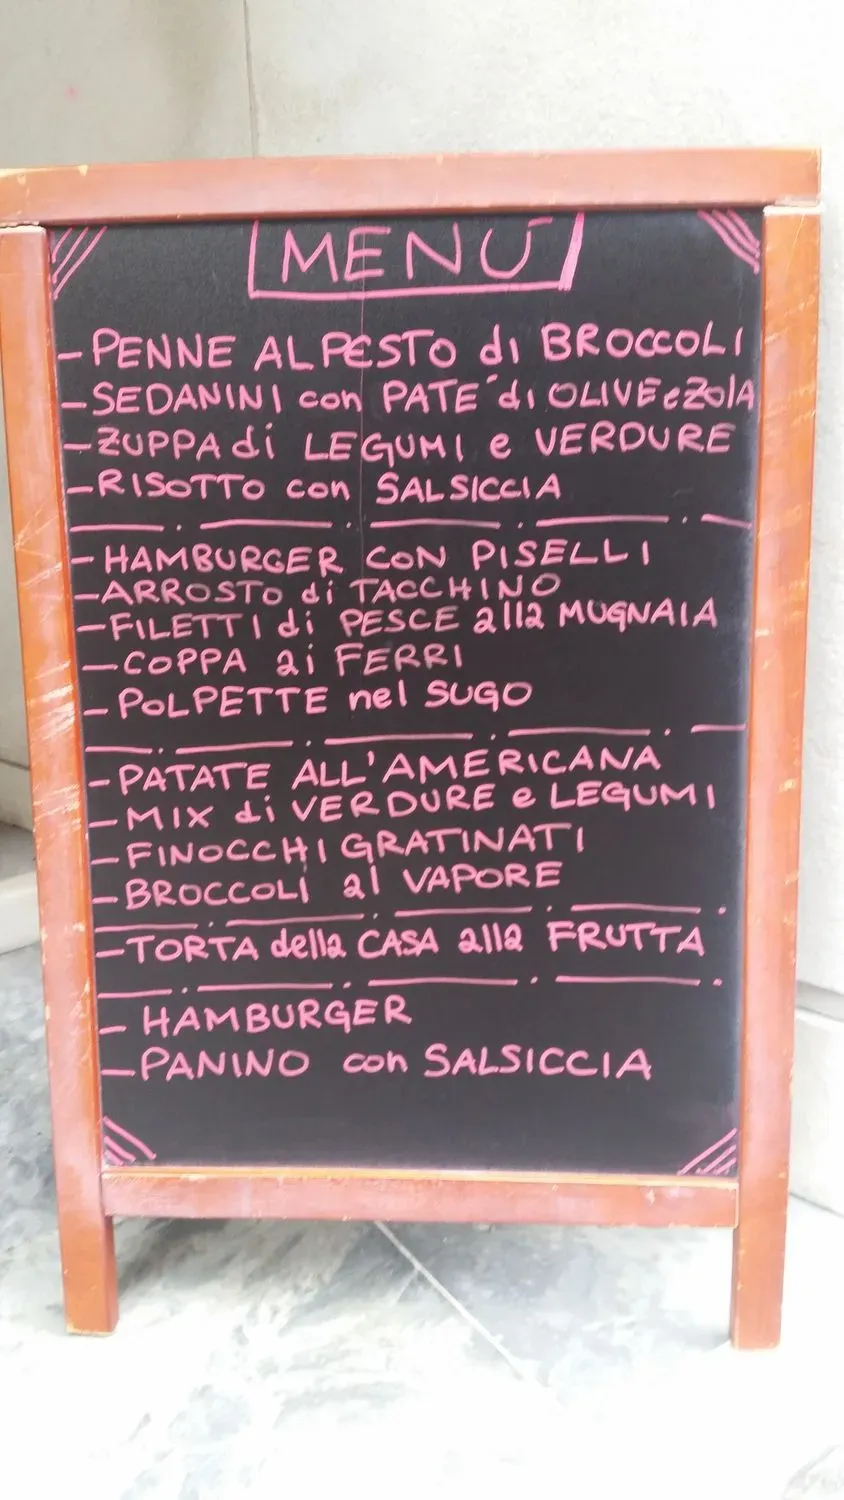 MENÚ
- PENNE AL PESTO di BROCCOLI
- SEDANINI con PATE´ di OLIVE e ZOLA
- ZUPPA di LEGUMI e VERDURE
- RISOTTO con SALSICCIA
- HAMBURGER CON PISELLI
- ARROSTO di TACCHINO
- FILETTI di PESCE alla MUGNAIA
- COPPA ai FERRI
- POLPETTE nel SUGO
- PATATE ALL'AMERICANA
- MIX di VERDURE e LEGUMI
- FINOCCHI GRATINATI
- BROCCOLI al VAPORE
- TORTA della CASA alla FRUTTA
- HAMBURGER
- PANINO con SALSICCIA